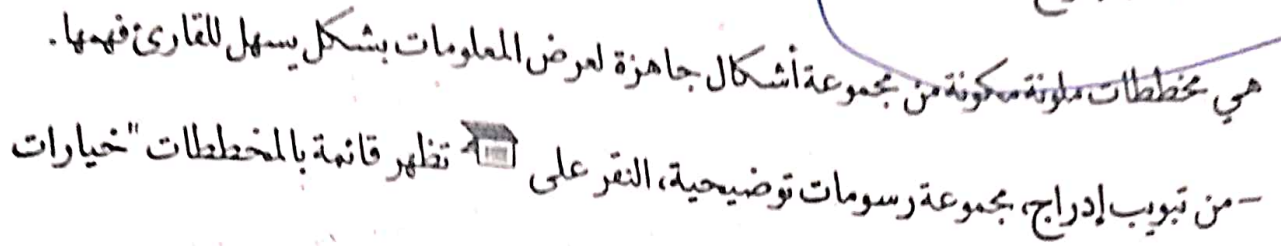 هي مخططات ملونة مكونة من مجموعة أشكال جاهزة لعرض المعلومات بشكل يسهل للقارئ فهمها.
-من تبويب إدراج، مجموعة رسومات توضيحية، النقر على تظهر قائمة بالمخططات "خيارات